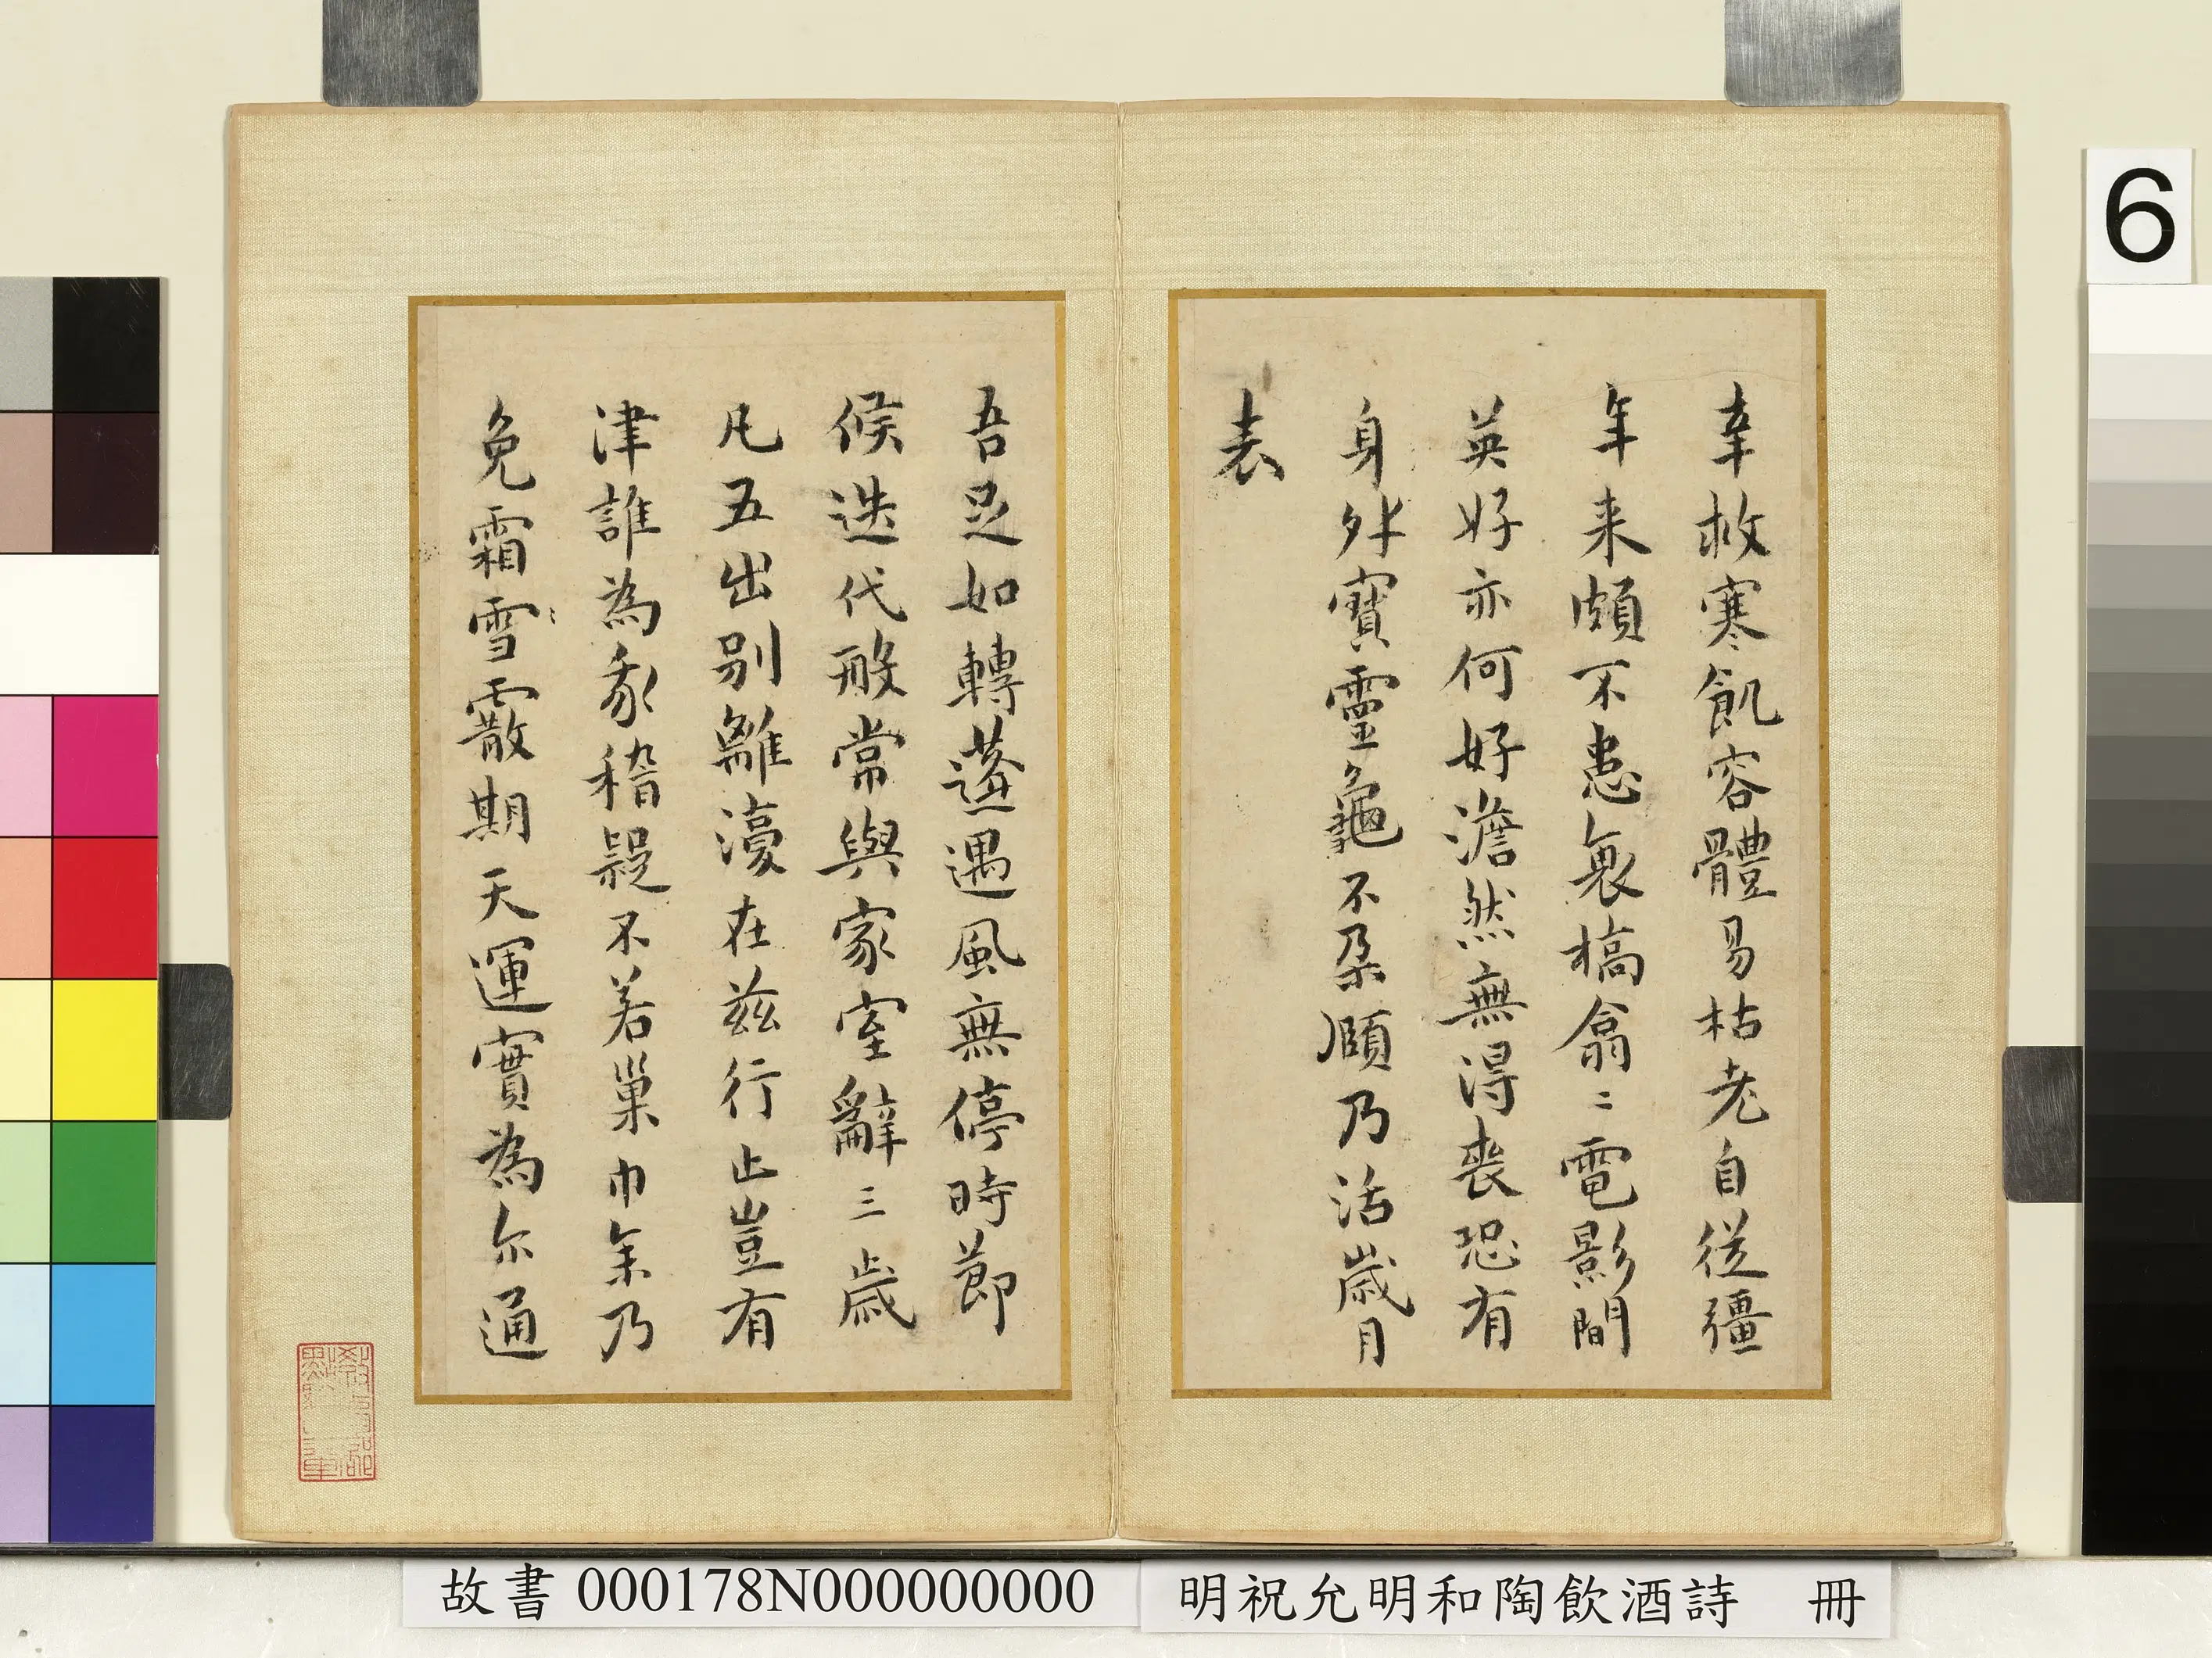 幸救寒飢容體易枯老自從彊
年来頗不患衰槁翕〻電影間
英好亦何好澹然無得喪恐有
身外寶靈龜不朵頤乃活歲月
表
吾足如轉蓬遇風無停時節
候迭代般常與家室辭三歲
凡五出別離濅在兹行止豈有
津誰為我稽疑不若巢巾余乃
免霜雪霰期天運實為尔通
6
故書 000178N000000000
明祝允明和陶飲酒詩 冊